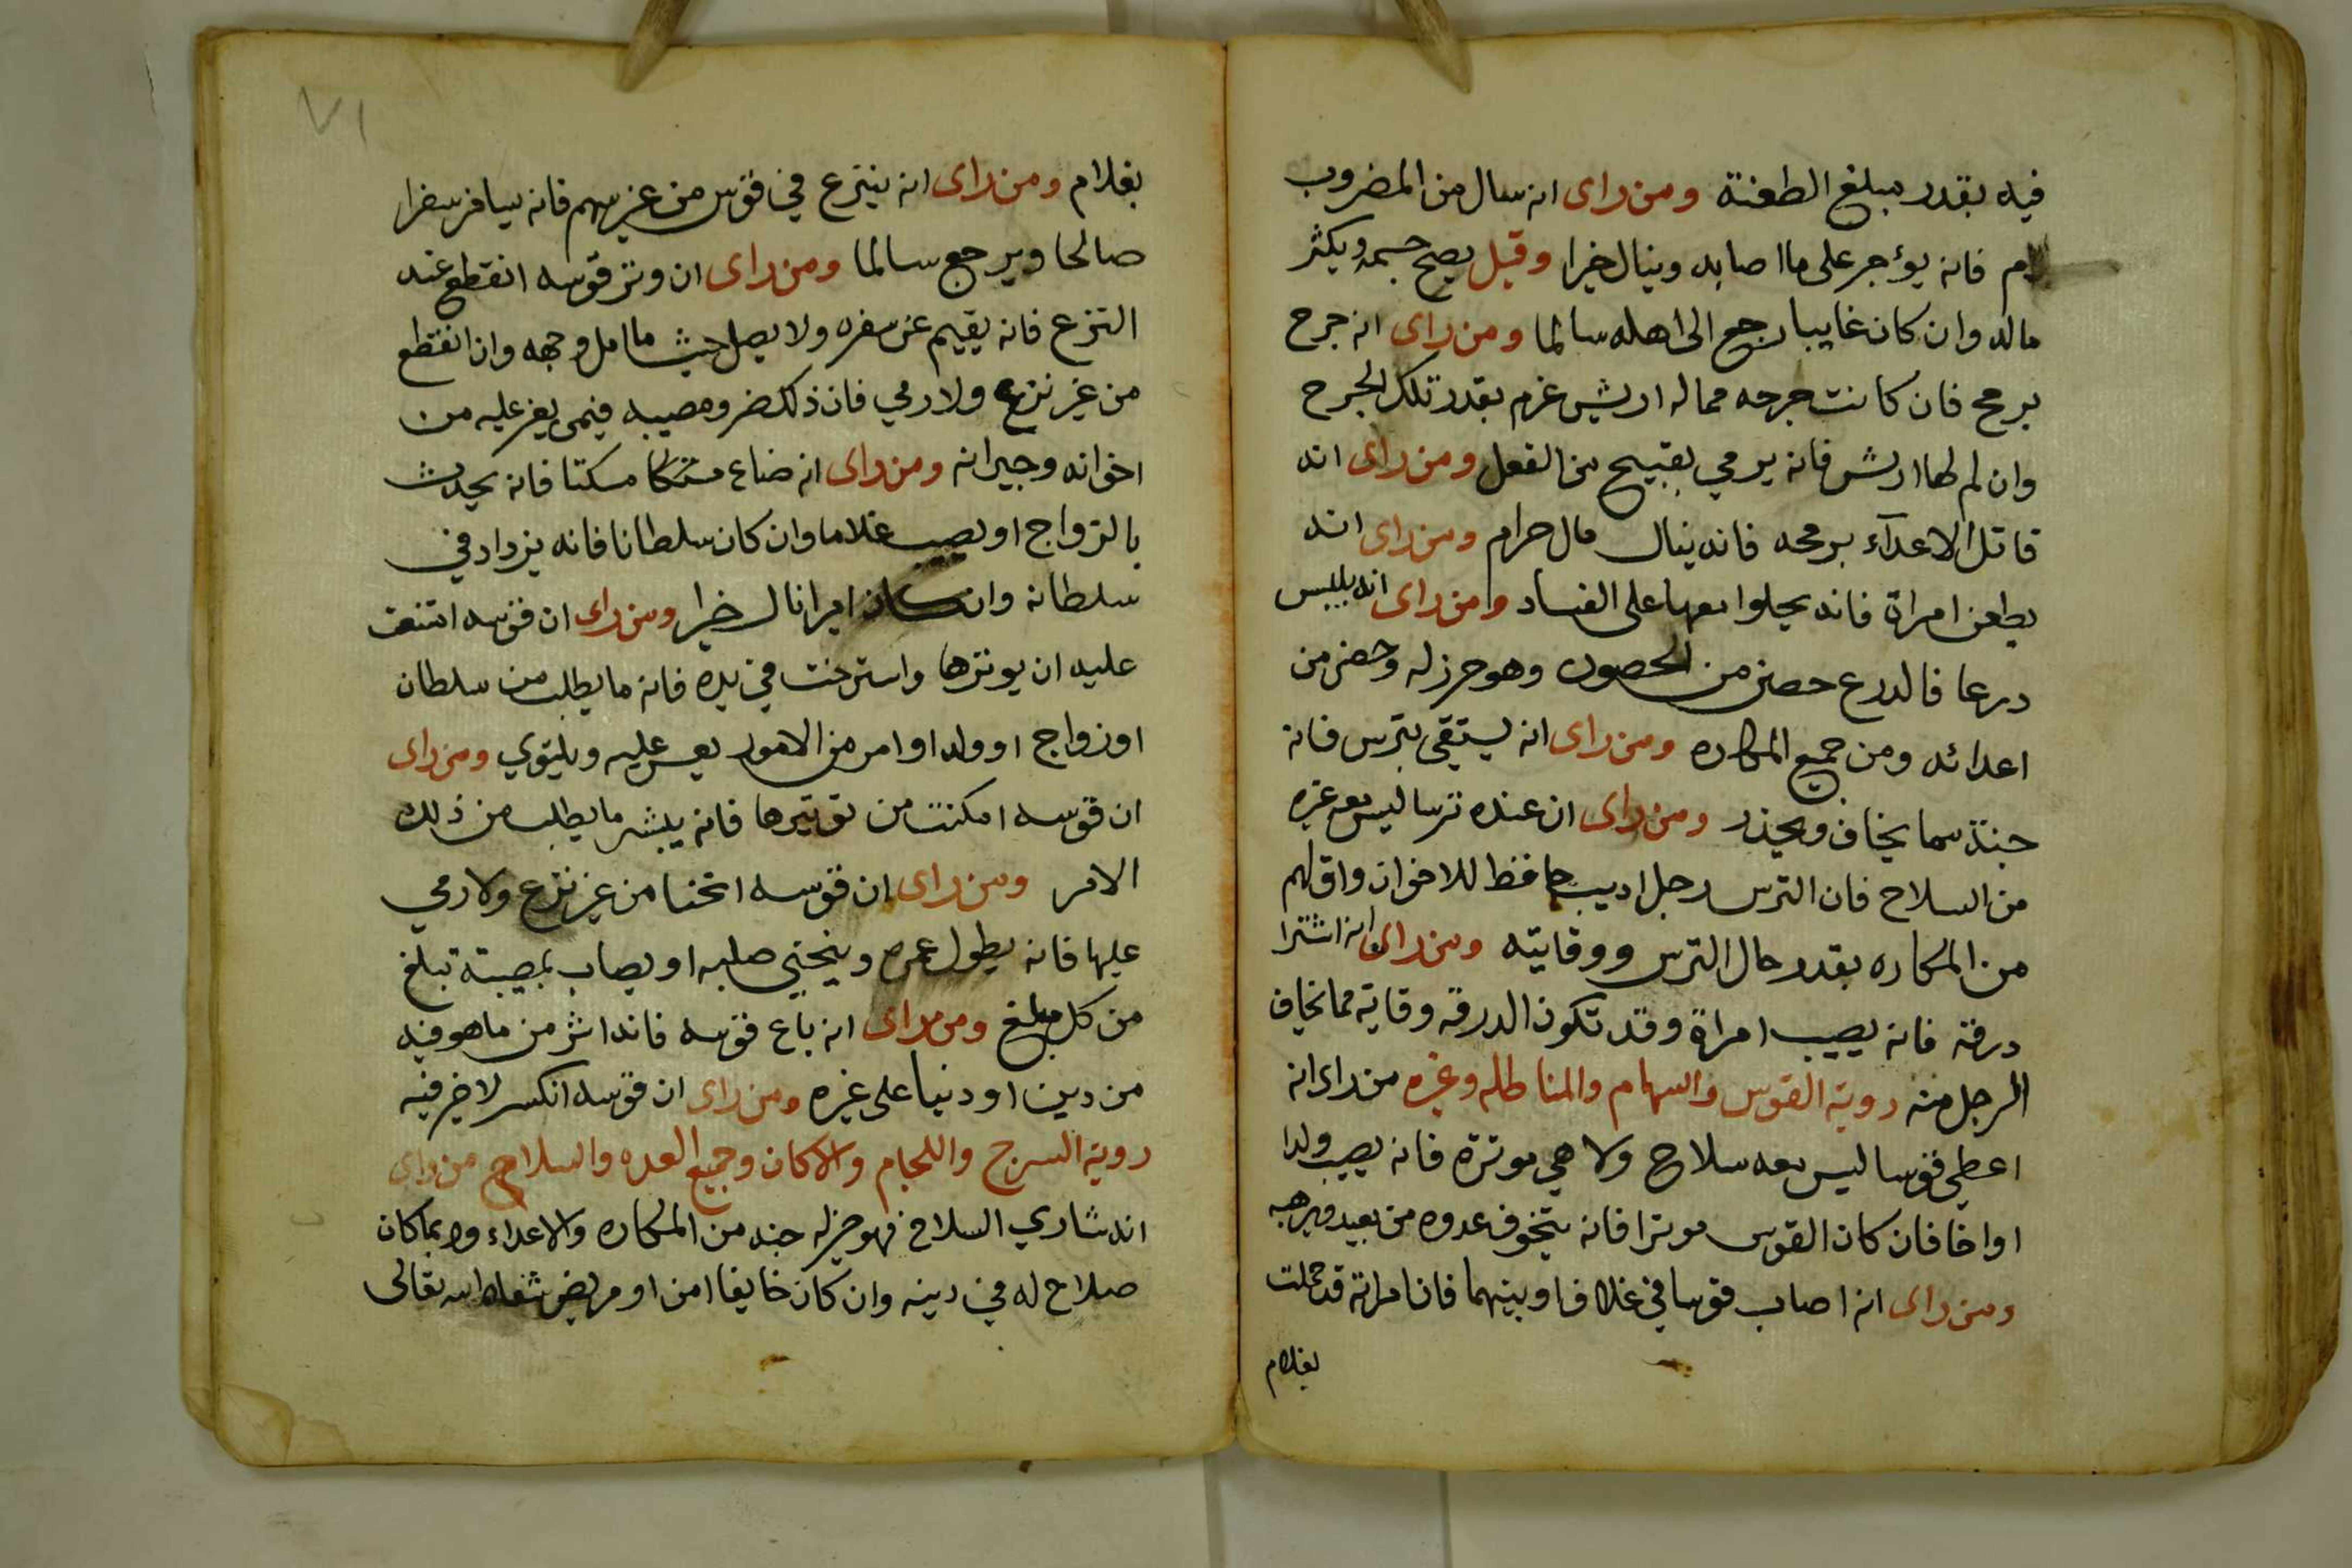 فيه بقدر مبلغ الطعنة ومن رای انه سال من المضروب
دم فانه يؤجر على ما اصابه وينال خيرا وقيل يصح جسمه ويكثر
ماله وان كان غايبا رجع الى اهله سالما ومن رای انه جرح
برمح فان كانت جرحه مماله اريش غرم بقدر تلك الجرح
وان لم لها اريش فانه يرمي بقبيح من الفعل ومن رای انه
قاتل الاعدآء برمحه فانه ينال مال حرام ومن رای انه
يطعن امراة فانه يحلوا معها على الفساد ومن رای انه يلبس
درعا فالدرع حصن من الحصون وهو حرز له وحصن من
اعدائه ومن جميع المكاره ومن رای انه يستقي بترس فانه
جنة مما يخاف ويحذر ومن رای ان عنده ترسا ليس معه غيره
من السلاح فان الترس رجل اديب حافظ للاخوان واق لهم
من المكاره بقدر حال الترس ووقايته ومن رای انه اشترا
درقه فانه يصيب امراة وقد تكون الدرقه وقاية مما يخاف
الرجل منه روية القوس والسهام والمناطله وغيره من رای انه
اعطي قوسا ليس معه سلاح ولا هي موترة فانه يصيب ولدا
او اخا فان كان القوس موترا فانه يتخوف عدوه من بعيد ويرهبه
ومن رای انه اصاب قوسا في غلاف او بينهما فان امراته قد حملت
بغلام
٧١
بغلام ومن رای انه ينزع في قوس من غير سهم فانه يسافر سفرا
صالحا ويرجع سالما ومن رای ان وتر قوسه انقطع عند
النزع فانه يقيم عن سفره ولا يصل حيث ما امل وجهه وان انقطع
من غير نزع ولا رمي فان ذلك ضر ومصيبه فيمن يعز عليه من
اخوانه وجيرانه ومن رای انه ضاع مسكا مسكتا فانه يحدث
بالزواج او يصيب غلاما وان كان سلطانا فانه يزداد في
سلطانه وان كان اميرا نال خيرا ومن رای ان قوسه اتنقت
عليه ان يوترها واسترخت في يده فانه ما يطلب من سلطان
او زواج او ولد او امر من الامور يعسر عليه ويلتوي ومن رای
ان قوسه امكنت من توتيرها فانه يبشر ما يطلب من ذلك
الامر ومن رای ان قوسه اتحنا من غير نزع ولا رمي
عليها فانه يطول عمره وينحني صلبه او يصاب بمصيبة تبلغ
من كل مبلغ ومن رای انه باع قوسه فانه اثر من ما هو فيه
من دين او دنيا على غيره ومن رای ان قوسه انكسر لا خير فيه
روية السرج واللجام والاكان وجميع العده والسلاح من رای
انه شاري السلاح فهو حرز له جنه من المكاره والاعداء وربما كان
صلاح له في دينه وان كان خايفا امن او مريض شفاه الله تعالى